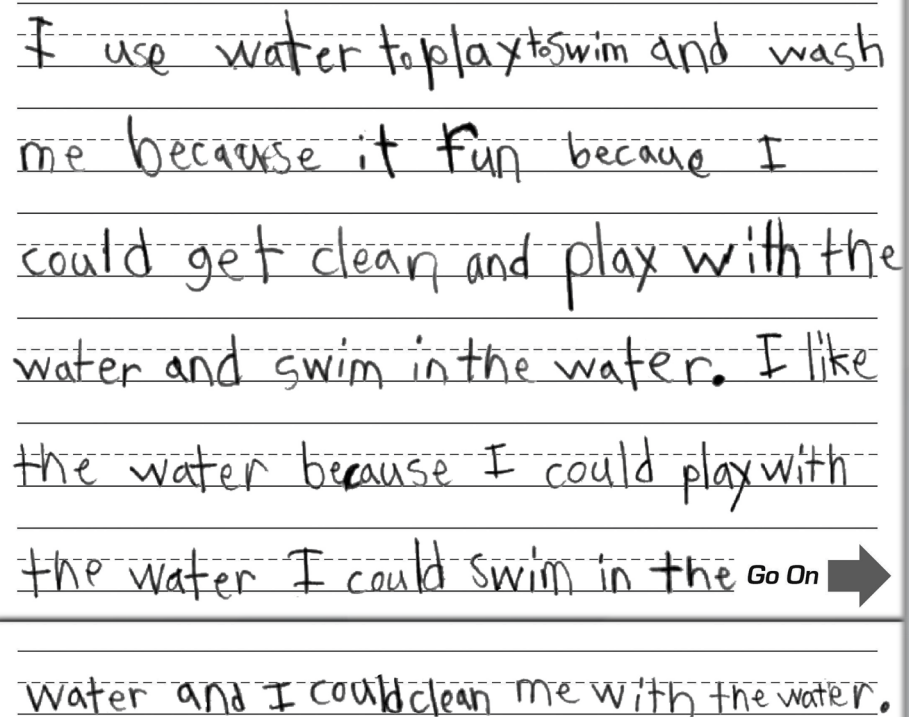 I use water to play to swim and wash
me because it fun becaue I
could get clean and play with the
water and swim in the water. I like
the water because I could play with
the water I could swim in the Go On
water and I could clean me with the water.